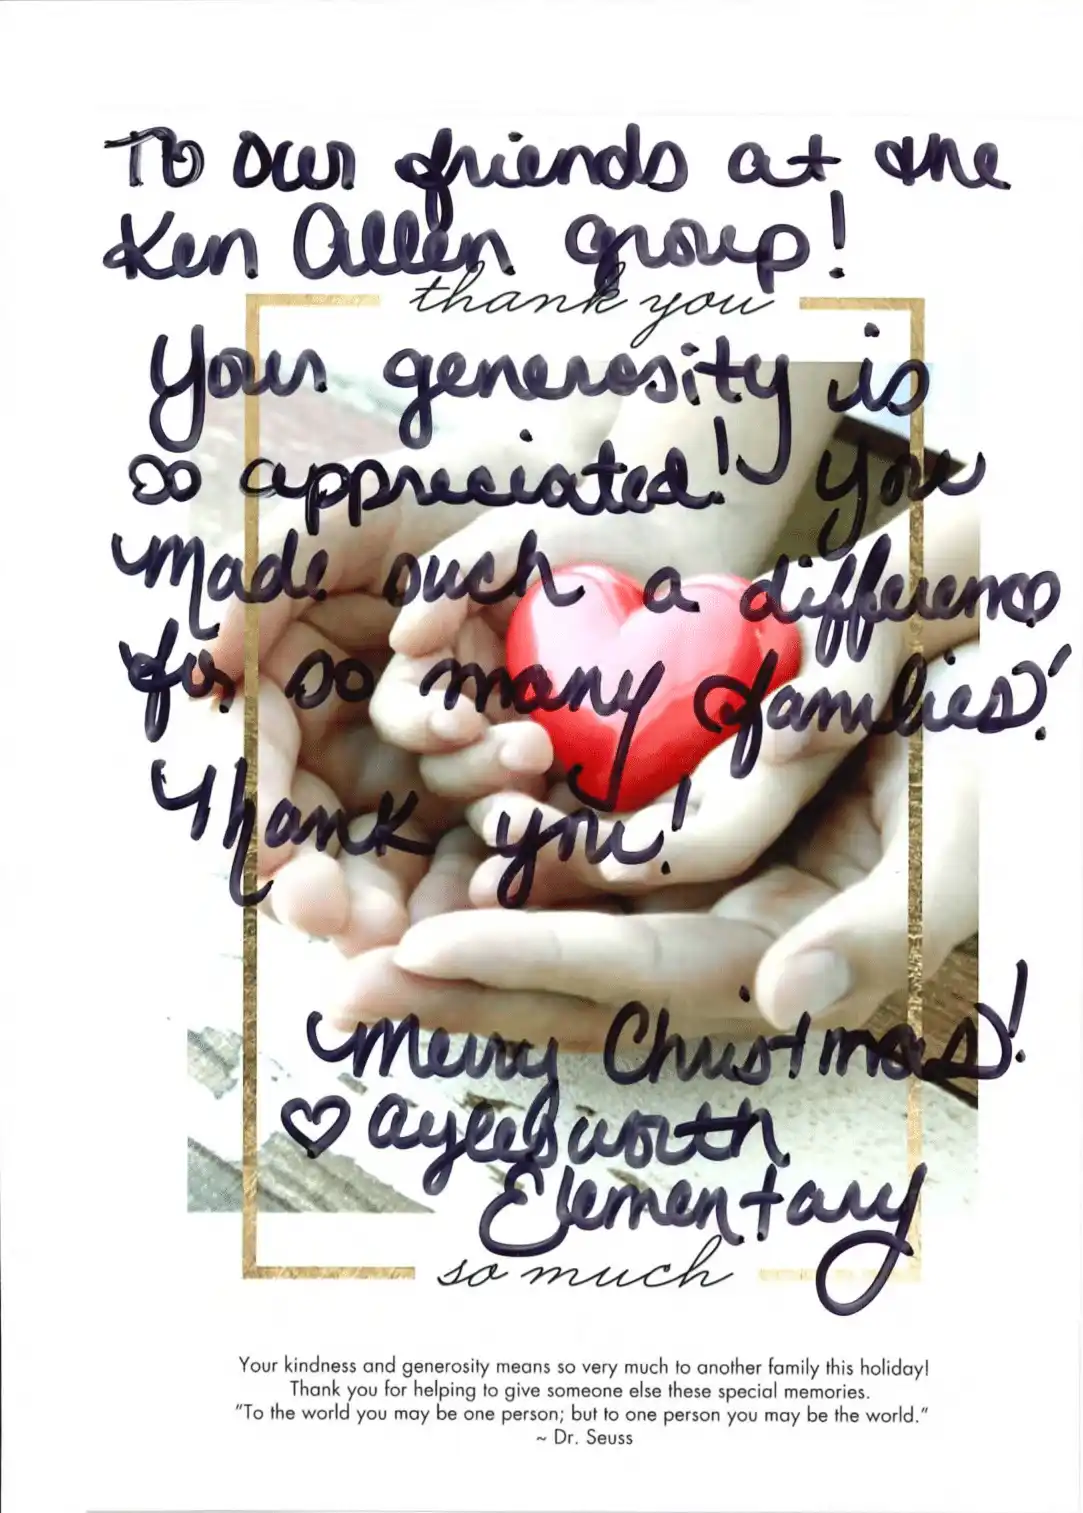 To our friends at the
Ken Allen group!
thank you
Your generosity is
so appreciated! You
made such a difference
for so many families!
Thank you!
Merry Christmas!
♡ Aylesworth
Elementary
so much
Your kindness and generosity means so very much to another family this holiday!
Thank you for helping to give someone else these special memories.
"To the world you may be one person; but to one person you may be the world."
~ Dr. Seuss